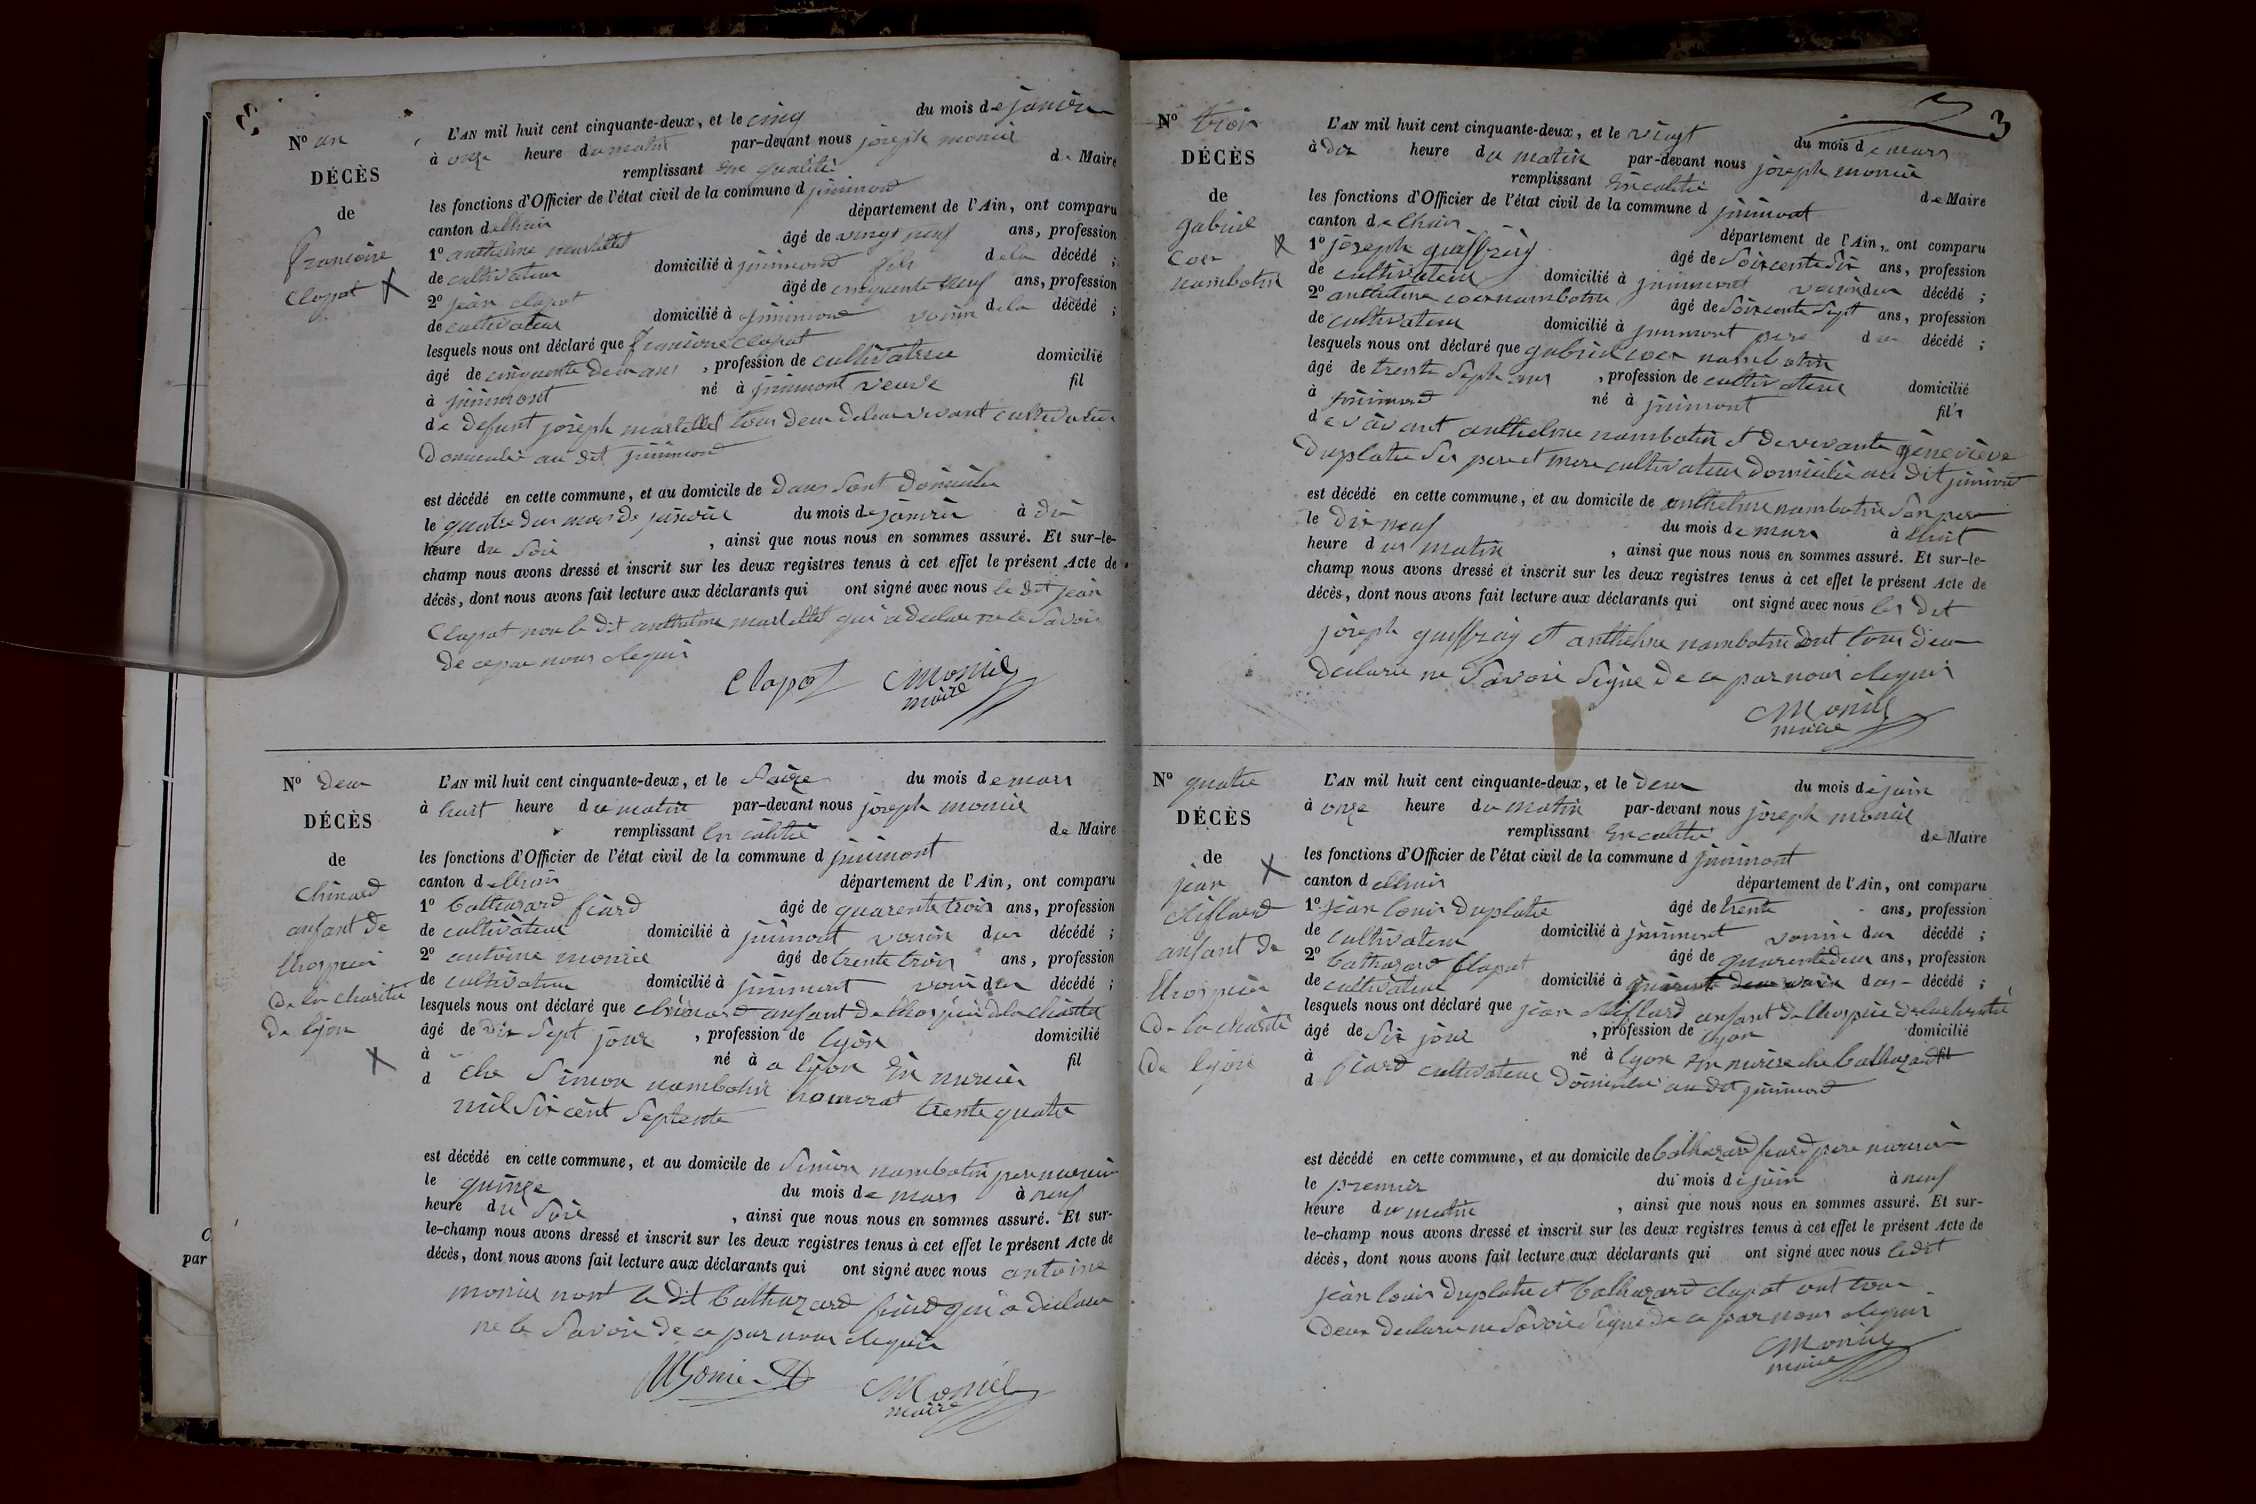 N° un
DÉCÈS
de
françoise
Clapot
L'AN mil huit cent cinquante-deux, et le cinq du mois de janvier
à onze heure du matin par-devant nous joseph monier
remplissant en qualité de Maire
les fonctions d'Officier de l'état civil de la commune d jujurieux
canton de
département de l'Ain, ont comparu
1° anthelme martellet âgé de vingt neuf ans, profession
de cultivateur domicilié à fils de la décédé ;
2° jean clapot âgé de cinquante neuf ans, profession
de cultivateur domicilié à voisin de la décédé ;
lesquels nous ont déclaré que françoise clapot
âgé de cinquante deux ans , profession de cultivatrice domicilié
à né à veuve fil
de defunt joseph martellet tous deux de leur vivant cultivateur
domicilié au dit
est décédé en cette commune, et au domicile de dans sont domicile
le quatre du mois de janvier du mois de janvier à dix
heure du soir , ainsi que nous nous en sommes assuré. Et sur-le-
champ nous avons dressé et inscrit sur les deux registres tenus à cet effet le présent Acte de
décès, dont nous avons fait lecture aux déclarants qui ont signé avec nous le dit jean
Clapot non le dit anthelme martellet qui a declare ne le savoir
de ce par nous
Clapot Monier
maire
N° deux
DÉCÈS
de
chinard
anfant de
lhospice
de la charité
de lyon
L'AN mil huit cent cinquante-deux, et le saize du mois de mars
à huit heure du matin par-devant nous joseph monier
remplissant en calité de Maire
les fonctions d'Officier de l'état civil de la commune d
canton de
département de l'Ain, ont comparu
1° balthazard fiard âgé de quarente trois ans, profession
de cultivateur domicilié à voisin du décédé ;
2° antoine monier âgé de trente trois ans, profession
de cultivateur domicilié à voisin du décédé ;
lesquels nous ont déclaré que chinard anfant de lhospice de la charité
âgé de dix sept jour , profession de lyon domicilié
à né à a lyon en fil
d che simon nambotin trente quatre
mil six cent septente
est décédé en cette commune, et au domicile de simon nambotin pere
le quinze du mois de mars à neuf
heure du soir , ainsi que nous nous en sommes assuré. Et sur-
le-champ nous avons dressé et inscrit sur les deux registres tenus à cet effet le présent Acte de
décès, dont nous avons fait lecture aux déclarants qui ont signé avec nous antoine
monier nont le dit balthazard fiard qui a declare
ne le savoir de ce par nous
Monier Monier
maire
3
N° trois
DÉCÈS
de
gabriel
coer
nambotin
L'AN mil huit cent cinquante-deux, et le vingt du mois de mars
à dix heure du matin par-devant nous joseph monier
remplissant en calité de Maire
les fonctions d'Officier de l'état civil de la commune d
canton de
département de l'Ain, ont comparu
1° joseph guiffray âgé de soixente six ans, profession
de cultivateur domicilié à voisin du décédé ;
2° anthelme coer nambotin âgé de soixente sept ans, profession
de cultivateur domicilié à pere du décédé ;
lesquels nous ont déclaré que gabriel coer nambotin
âgé de trente sept ans , profession de cultivateur domicilié
à né à fils
de vivant anthelme nambotin et de vivante geneviève
duplatre ses pere et mere cultivateur domicilié au dit
est décédé en cette commune, et au domicile de anthelme nambotin son pere
le dix neuf du mois de mars à huit
heure du matin , ainsi que nous nous en sommes assuré. Et sur-le-
champ nous avons dressé et inscrit sur les deux registres tenus à cet effet le présent Acte de
décès, dont nous avons fait lecture aux déclarants qui ont signé avec nous les dit
joseph guiffray et anthelme nambotin ont tous deux
declare ne savoir signe de ce par nous
Monier
maire
N° quatre
DÉCÈS
de
jean
anfant de
lhospice
de la charité
de lyon
L'AN mil huit cent cinquante-deux, et le deux du mois de juin
à onze heure du matin par-devant nous joseph monier
remplissant en calité de Maire
les fonctions d'Officier de l'état civil de la commune d
canton d
département de l'Ain, ont comparu
1° jean louis duplatre âgé de trente ans, profession
de cultivateur domicilié à voisin du décédé ;
2° balthazard clapot âgé de quarente deux ans, profession
de cultivateur domicilié à voisin du décédé ;
lesquels nous ont déclaré que jean anfant de lhospice de la charité
âgé de six jour , profession de lyon domicilié
à né à lyon en che balthazard fil
d fiard cultivateur domicilié au dit
est décédé en cette commune, et au domicile de balthazard fiard pere
le premier du mois de juin à neuf
heure du matin , ainsi que nous nous en sommes assuré. Et sur-
le-champ nous avons dressé et inscrit sur les deux registres tenus à cet effet le présent Acte de
décès, dont nous avons fait lecture aux déclarants qui ont signé avec nous le dit
jean louis duplatre et balthazard clapot ont tous
deux declare ne savoir signe de ce par nous
Monier
maire